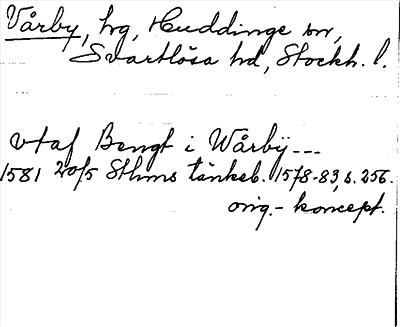 Vårby, hg, Huddinge sn,
Svartlösa hd, Stockh. l.
vtaf Bengt i Wårbÿ---
1581 20/5 Sthms tänkeb. 1578-83, s. 256.
orig.- koncept.